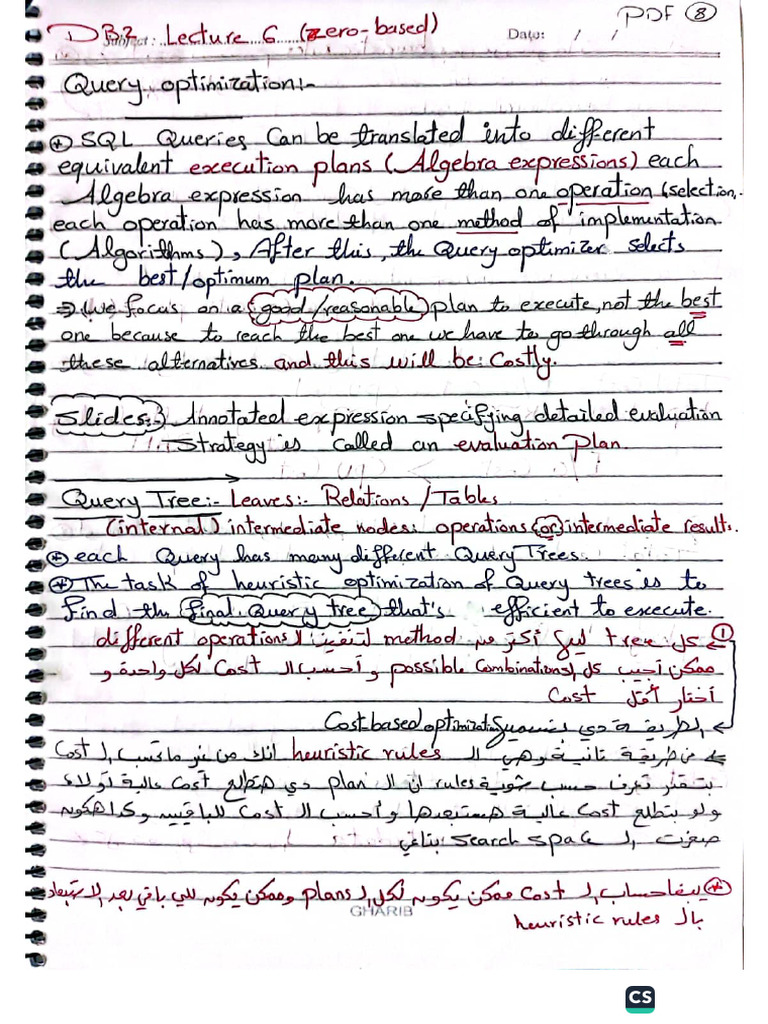 PDF 8
DB2 Subject: Lecture 6 (zero-based) Date: / /
Query optimization:-
* SQL Queries Can be translated into different
equivalent execution plans (Algebra expressions) each
Algebra expression has more than one operation (selection,
each operation has more than one method of implementation
(Algorithms), After this, the Query optimizer selects
the best/optimum plan.
⇒ We focus on a good/reasonable plan to execute, not the best
one because to reach the best one we have to go through all
these alternatives and this will be Costly.
Slides: Annotated expression specifying detailed evaluation
strategy is called an evaluation plan.
Query Tree:- Leaves:- Relations / Tables
(internal) intermediate nodes: operations or intermediate results.
* each Query has many different Query Trees.
* The task of heuristic optimization of Query trees is to
find the final Query tree that's efficient to execute.
① كل tree ليها أكتر من method لتنفيذ الـ different operations
ممكن أجيب كل الـ possible Combinations و أحسب الـ Cost لكل واحدة و
أختار أقل Cost
الطريقة دي Cost based optimization
في طريقة تانية وهي الـ heuristic rules انك من غير ما تحسب الـ Cost
بتقدر تعرف حسب شوية rules ان الـ plan دي هتطلع Cost عالية أولاء
ولو بتطلع Cost عالية هستبعدها و أحسب الـ Cost للباقيين وكدا هكون
صغرت الـ search space بتاعي
* يبقا حساب الـ Cost ممكن يكون لكل الـ plans وممكن يكون للي باقي بعد الاستبعاد
بالـ heuristic rules
GHARIB
CS